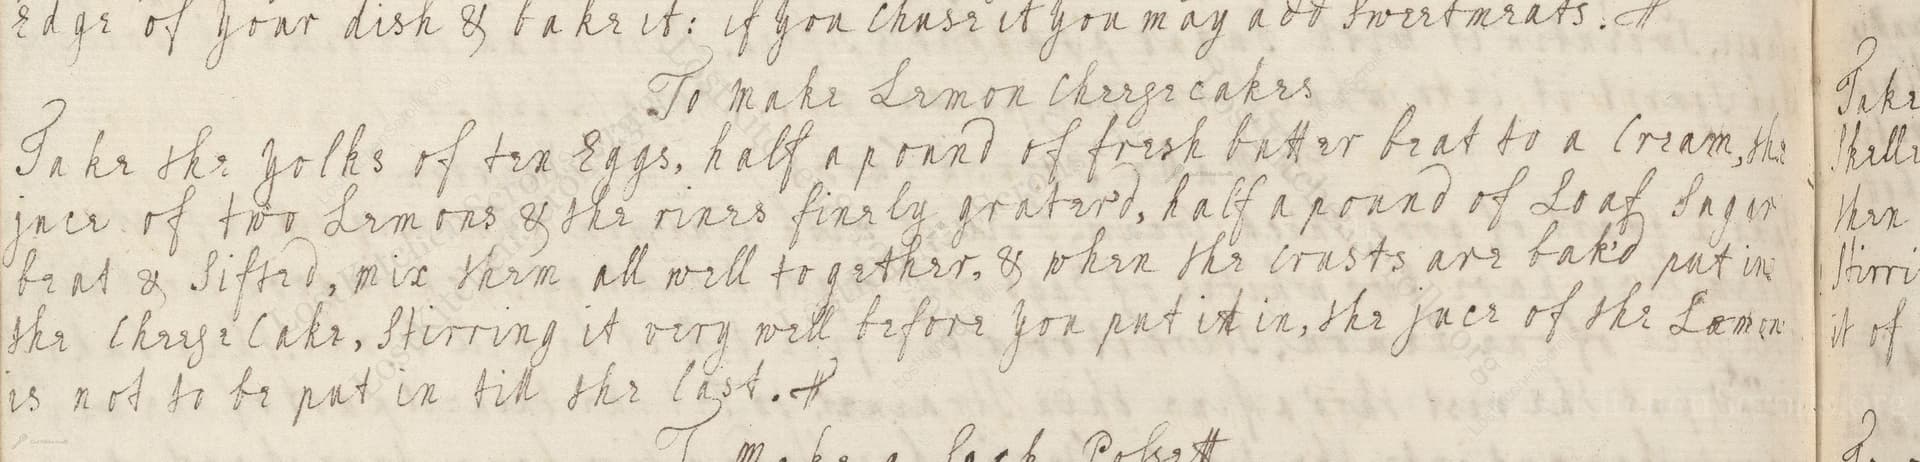 edge of your dish & bake it: if you chuse it you may add Sweetmeats.
To make Lemon Cheesecakes
Take the yolks of ten Eggs, half a pound of fresh butter beat to a Cream, the
juce of two Lemons & the rines finely grater'd, half a pound of Loaf Sugar
beat & Sifted, mix them all well together, & when the crusts are bak'd put in
the Cheese Cake, Stirring it very well before you put it in, the juce of the Lemon
is not to be put in till the last.
To Make a Sack Possett
Take
then
it of